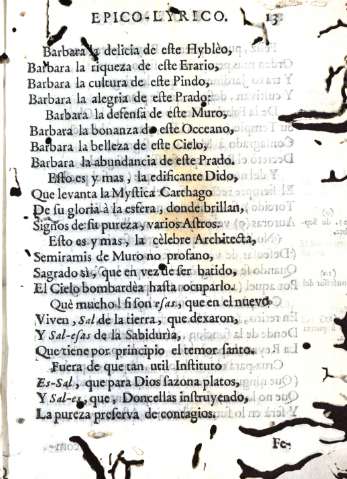 EPICO-LYRICO. 13
Barbara la delicia de eſte Hyblèo,
Barbara la riqueza de eſte Erario,
Barbara la cultura de eſte Pindo,
Barbara la alegria de eſte Prado;
Barbara la defenſa de eſte Muro,
Barbara la bonanza de eſte Occeano,
Barbara la belleza de eſte Cielo,
Barbara la abundancia de eſte Prado.
Eſto es y mas, la edificante Dido,
Que levanta la Myſtica Carthago
De ſu gloria à la esfera, donde brillan,
Signos de ſu pureza, varios Aſtros.
Eſto es y mas, la cèlebre Architecta,
Semiramis de Muro no profano,
Sagrado sì, que en vez de ſer batido,
El Cielo bombardèa haſta ocuparlo.
Què mucho! ſi ſon eſas, que en el nuevo
Viven, Sal de la tierra, que dexaron,
Y Sal-eſas de la Sabiduria,
Que tiene por principio el temor ſanto.
Fuera de que tan util Inſtituto
Es-Sal, que para Dios ſazona platos,
Y Sal-es, que, Doncellas inſtruyendo,
La pureza preſerva de contagios.
Fe-